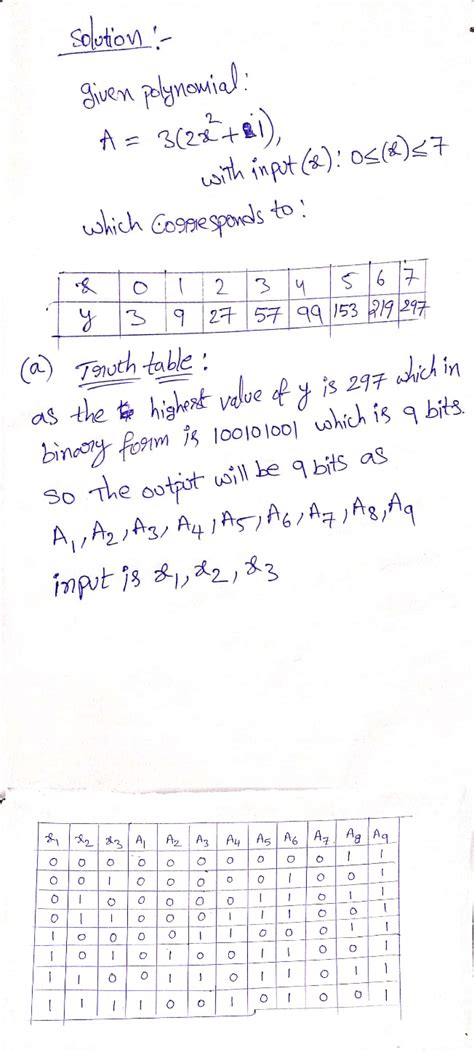 Solution :-
given polynomial:
A = 3(2x²+1),
with input (x): 0≤(x)≤7
which Corresponds to:
x 0 1 2 3 4 5 6 7
y 3 9 27 57 99 153 219 297
(a) Truth table:
as the highest value of y is 297 which in
binary form is 100101001 which is 9 bits.
So The output will be 9 bits as
A₁, A₂, A₃, A₄, A₅, A₆, A₇, A₈, A₉
input is x₁, x₂, x₃
x₁ x₂ x₃ A₁ A₂ A₃ A₄ A₅ A₆ A₇ A₈ A₉
0 0 0 0 0 0 0 0 0 0 1 1
0 0 1 0 0 0 0 0 1 0 0 1
0 1 0 0 0 0 0 1 1 0 1 1
0 1 1 0 0 0 1 1 1 0 0 1
1 0 0 0 0 1 1 0 0 0 1 1
1 0 1 0 1 0 0 1 1 0 0 1
1 1 0 0 1 1 0 1 1 0 1 1
1 1 1 1 0 0 1 0 1 0 0 1